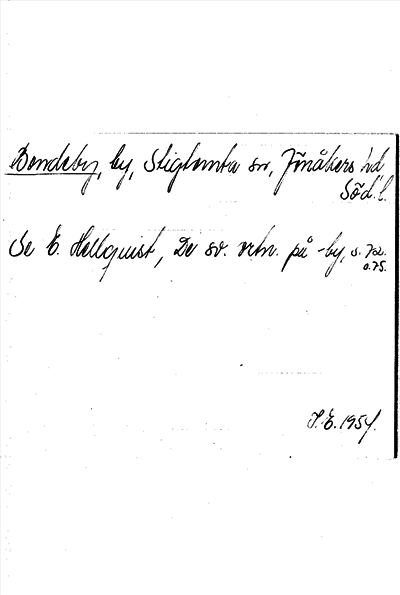 Bendeby, by, Stigtomta sn, Jönåkers hd
Söd. l.
Se E. Hellquist, De sv. ortn. på -by, s. 72.
o. 75.
J. E. 1954.